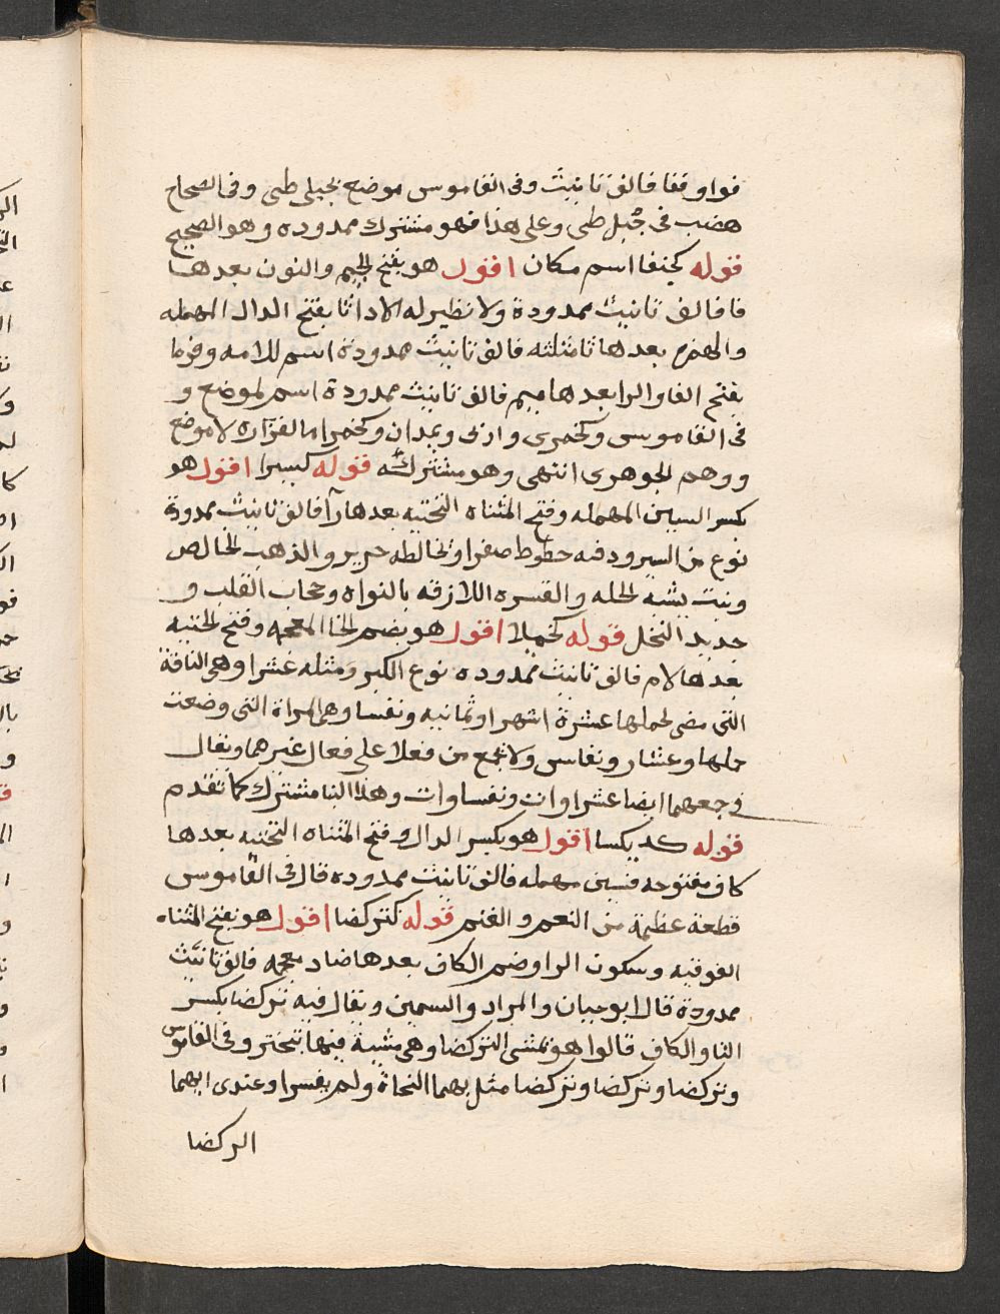 فواو ففا فالف تانيث وفى القاموس موضع بجبلى طى وفى الصحاح
هضب فى جبل طى وعلى هذا فهو مشترك ممدوده وهو الصحيح
قوله كجنفا اسم مكان اقول هو بفتح الجيم والنون بعدها
فا فالف تانيث ممدودة ولا نظير له الا داثا بفتح الدال المهمله
والهمزه بعدها ثا مثلثه فالف تانيث ممدودة اسم للامه وفرما
بفتح الفا والرا بعدها ميم فالف تانيث ممدودة اسم لموضع و
فى القاموس وكجمزى واربى ويمدان وكخمرا ما لفزاره لا موضع
ووهم الجوهرى انتهى وهو مشترك قوله كسيرا اقول هو
بكسر السين المهمله وفتح المثناه التحتيه بعدها رآ فالف تانيث ممدودة
نوع من البرود فيه خطوط صفر او يخالطه حرير والذهب الخالص
ونبت يشبه الخله والقسره اللازقه بالنواه وحجاب القلب و
جديد النخل قوله كخيلا اقول هو بضم الخا المعجمه وفتح التحتيه
بعدها لام فالف تانيث ممدوده نوع الكبر ومثله عشرا وهى الناقة
التى مضى لحملها عشرة اشهر او ثمانيه ونفسا وهى المراة التى وضعت
حملها وعشار ونفاس ولا يجمع من فعلا على فعال غيرهما ويقال
فى جمعهما ايضا عشراوات ونفساوات وهذا البنا مشترك كما تقدم
قوله كديكسا اقول هو بكسر الدال وفتح المثناه التحتيه بعدها
كاف مفتوحه فسين مهمله فالف تانيث ممدوده قال فى القاموس
قطعة عظيمة من النعم والغنم قوله كتركضا اقول هو بفتح المثناه
الفوقيه وسكون الرا وضم الكاف بعدها ضاد معجمه فالف تانيث
ممدودة قال ابو حيان والمراد والسمين ويقال فيه تركضا بكسر
التا والكاف قالوا هو يمشى التركضا وهى مشية فيها تبختر وفى القاموس
وتركضا وتركضا وتركضا مثل بهما النحاة ولم يفسرا وعندى انهما
الركضا